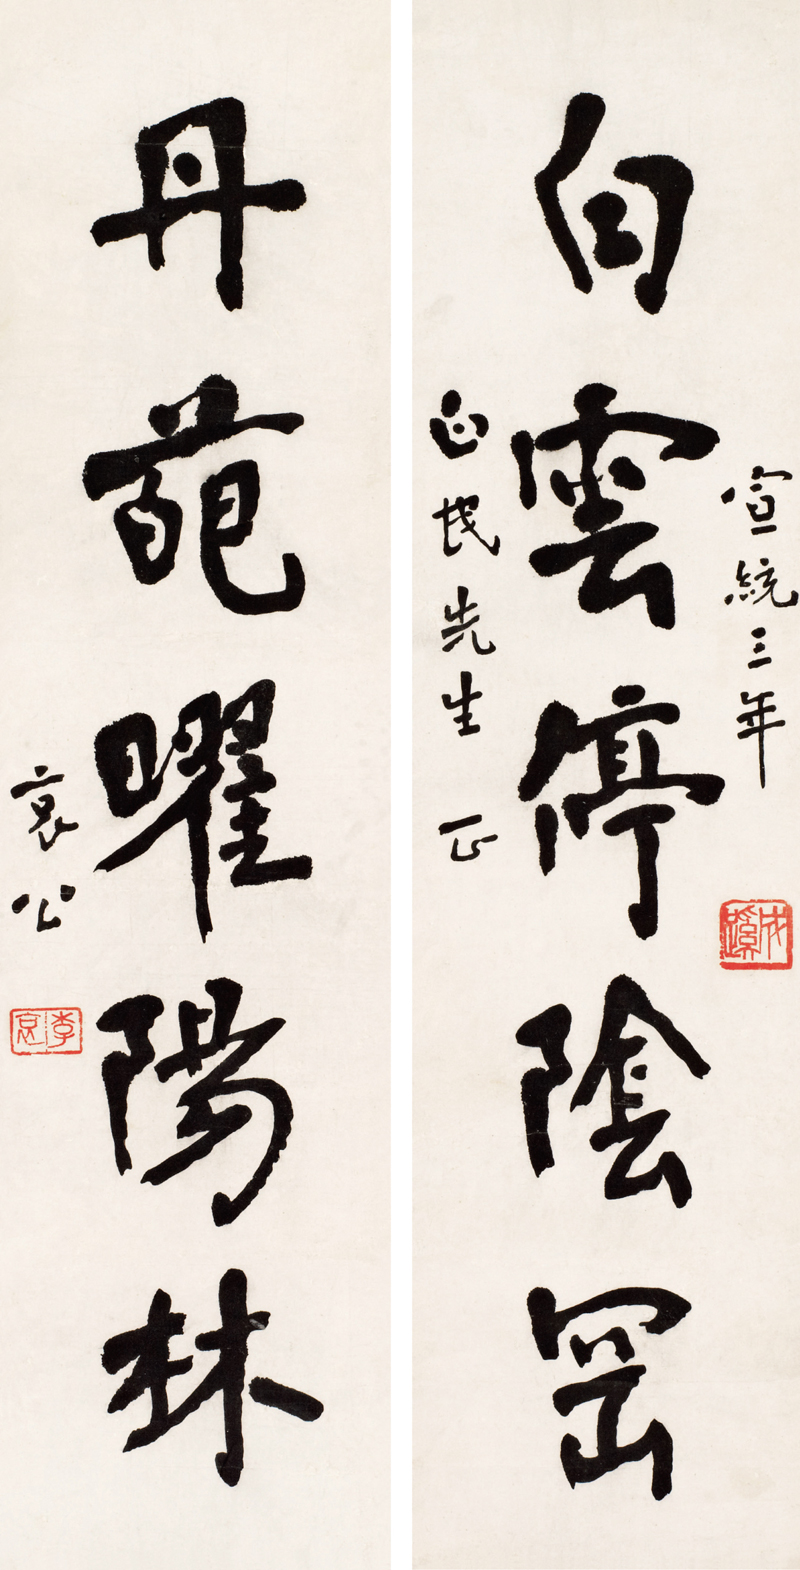 宣統三年
成蹊
白雲停陰岡
白民先生 正
丹葩曜陽林
哀公
李哀